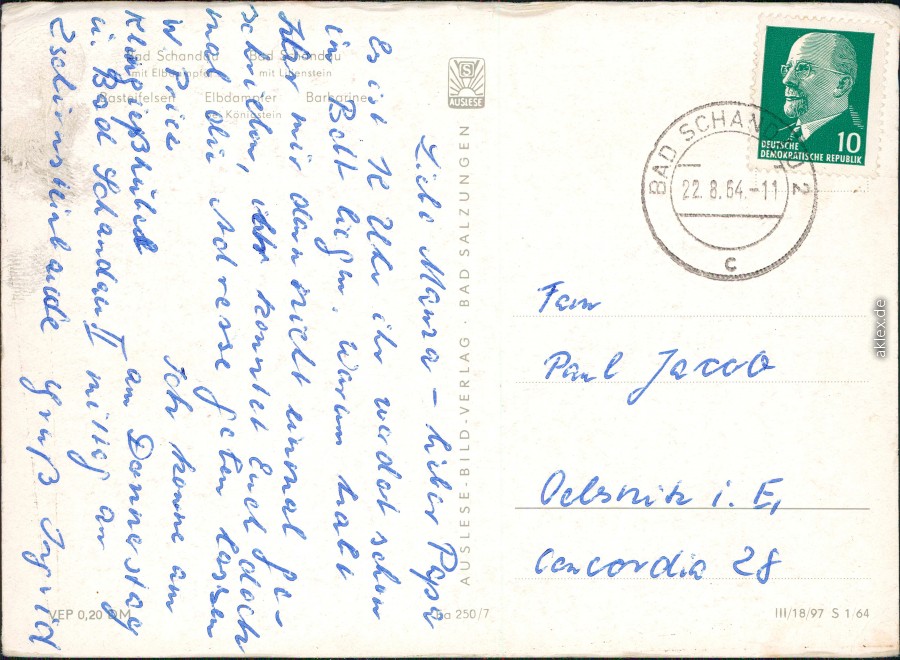 Bad Schandau
mit Elbdampfer
Bad Schandau
mit Lilienstein
Basteifelsen
Elbdampfer
Königstein
Barbarine
Liebe Mama - lieber Papa
Es ist Uhr ihr werdet schon
im Bett liegen. Warum habt
Ihr mir denn nicht einmal ge-
schrieben, ihr konntet Euch doch
mal die Adresse geben lassen
Ich komme am
am Donnerstag
u. Bad Schandau II mittag an
Gruß Ingrid
VEP 0,20 DM
S
AUSLESE
AUSLESE-BILD-VERLAG · BAD SALZUNGEN
Ba 250/7
10
DEUTSCHE
DEMOKRATISCHE REPUBLIK
BAD SCHANDAU 2
22.8.64.-11
c
Fam
Paul Jacob
Oelsnitz i. E,
Concordia 28
III/18/97 S 1/64
aklex.de